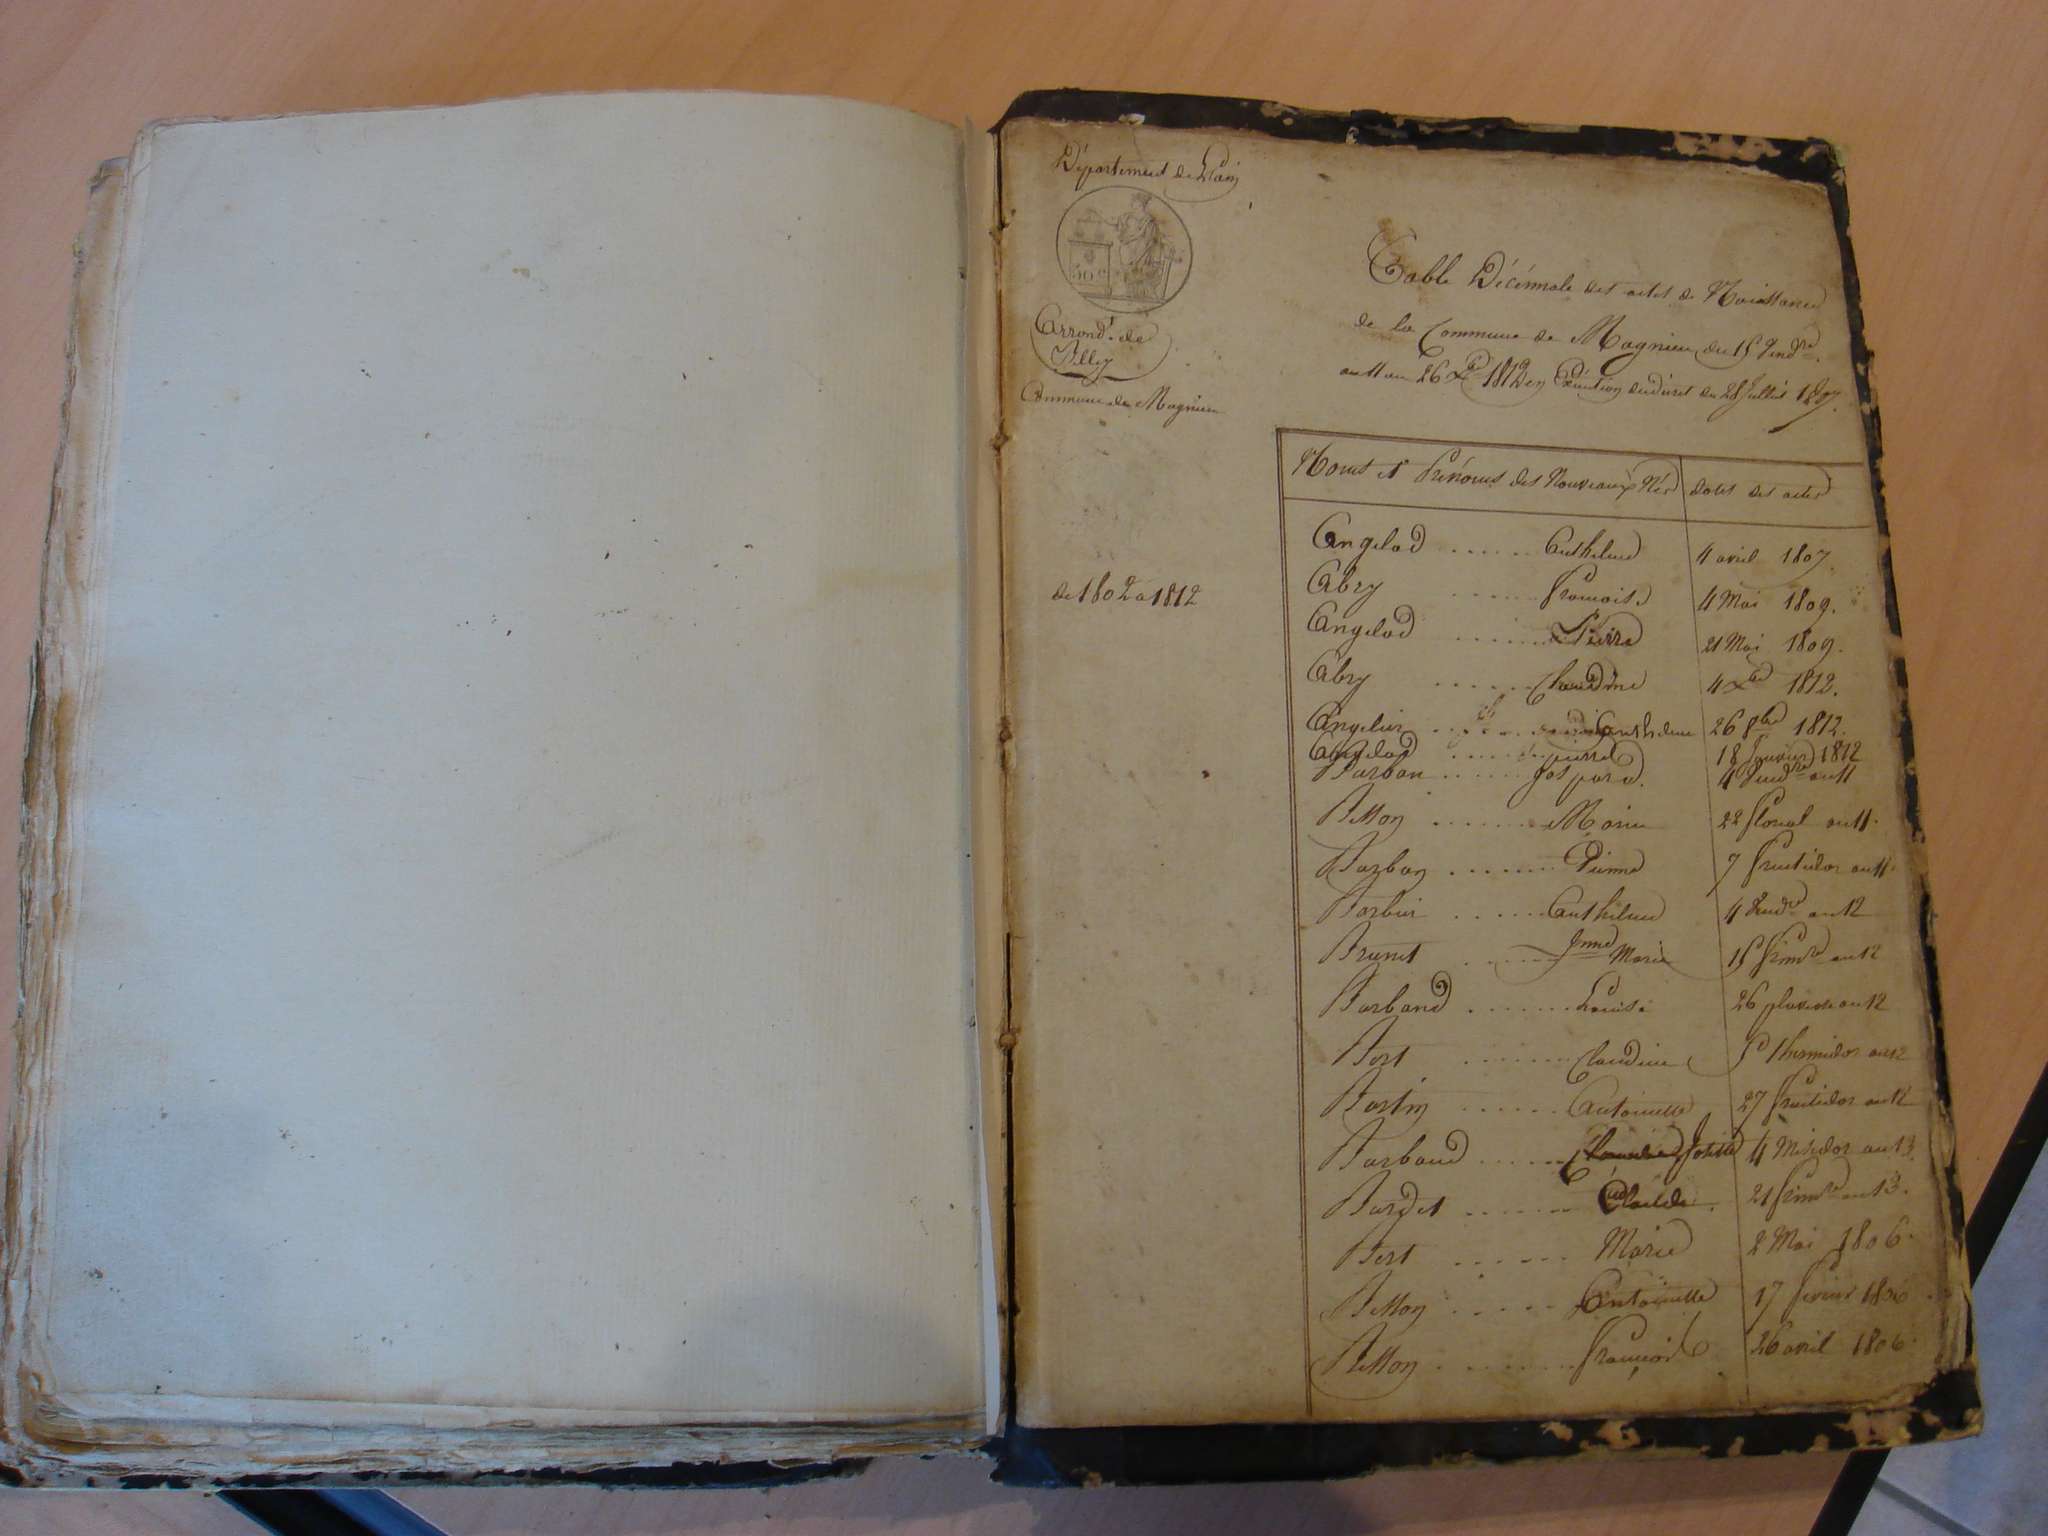 Département de l'ain
50 c
Arrond.t de
Belley
Commune de Magnieu
de 1802 a 1812
Table Décénnale des actes de Naissance
de la Commune de Magnieu du 15 Vend.re
an 11 au 26 Xbre 1812 en Exécution du décret du 28 Juillet 1807.
Noms et Prénoms des Nouveaux Nés dates des actes
Angelod ...... Anthelme 4 avril 1807.
Abry ...... francoise 4 Mai 1809.
Angelod ...... Pierre 21 Mai 1809.
Abry ...... Claudine 4 Xbre 1812.
Angelier ...... Anthelme 26 8bre 1812.
Angelod ...... pierre 18 Janvier 1812
Barban ...... Gaspard. 4 Vend.re an 11
Billon ....... Marie 22 floreal an 11.
Barban ....... Pierre 7 fructidor an 11.
Barbier ...... Anthelme 4 Vend.re an 12
Brunet ...... Marie 15 frim.re an 12
Barband ....... Louise 26 pluviose an 12
Bert ....... Claudine 5 thermidor an 12
Bertin ...... Antoinette 27 fructidor an 12
Barband ...... Josette 4 Messidor an 13.
Bardet ....... Claude. 21 frim.re an 13.
Bert ...... Marie 2 Mai 1806.
Billon ...... Antoinette 17 fevrier 1806.
Billon ....... françois 26 avril 1806.